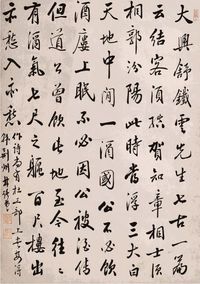 大興舒鐵雲先生七古一篇
云結客須結賀知章相士須
相郭汾陽此時當浮三大白
天地中間一酒國公不必飲
酒壚上眠不必因公被酒傳
但道公曾飲此地至今往往
有酒氣七尺之軀百尺樓出
亦愁入亦愁